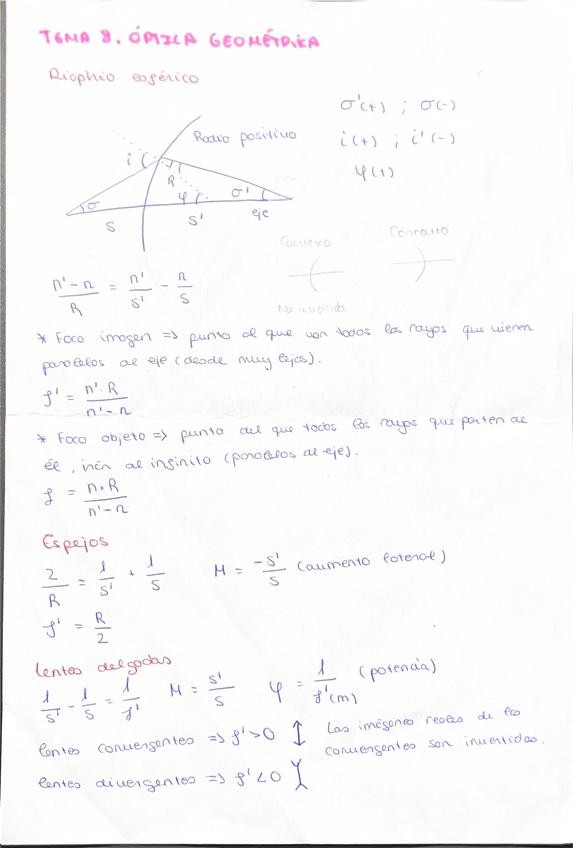 TEMA 8. ÓPTICA GEOMÉTRIKA
Dioptrio esférico
σ'(+) ; σ(-)
i(+) ; i'(-)
φ(+)
Radio positivo
i
R
σ
φ
σ'
s
s'
eje
Convexo
Cóncavo
(n'-n)/R = n'/s' - n/s
* Foco imagen => punto al que van todos los rayos que vienen
paralelos al eje (desde muy lejos).
f' = (n'·R)/(n'-n)
* Foco objeto => punto del que todos los rayos que parten de
él, irán al infinito (paralelos al eje).
f = (n·R)/(n'-n)
Espejos
2/R = 1/s' + 1/s
M = -s'/s (aumento lateral)
f' = R/2
Lentes delgadas
1/s' - 1/s = 1/f'
M = s'/s
φ = 1/f'(m) (potencia)
lentes convergentes => f'>0
Las imágenes reales de las
convergentes son invertidas.
lentes divergentes => f'<0